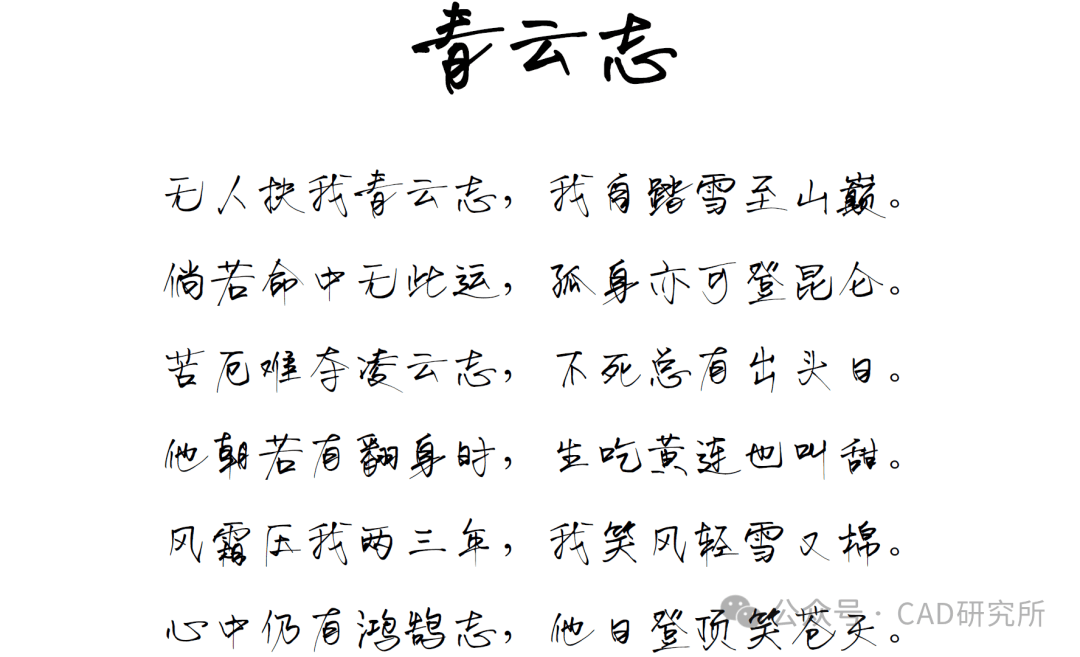 青云志
无人扶我青云志，我自踏雪至山巅。
倘若命中无此运，孤身亦可登昆仑。
苦厄难夺凌云志，不死总有出头日。
他朝若有翻身时，生吃黄连也叫甜。
风霜压我两三年，我笑风轻雪又棉。
心中仍有鸿鹄志，他日登顶笑苍天。
公众号·CAD研究所